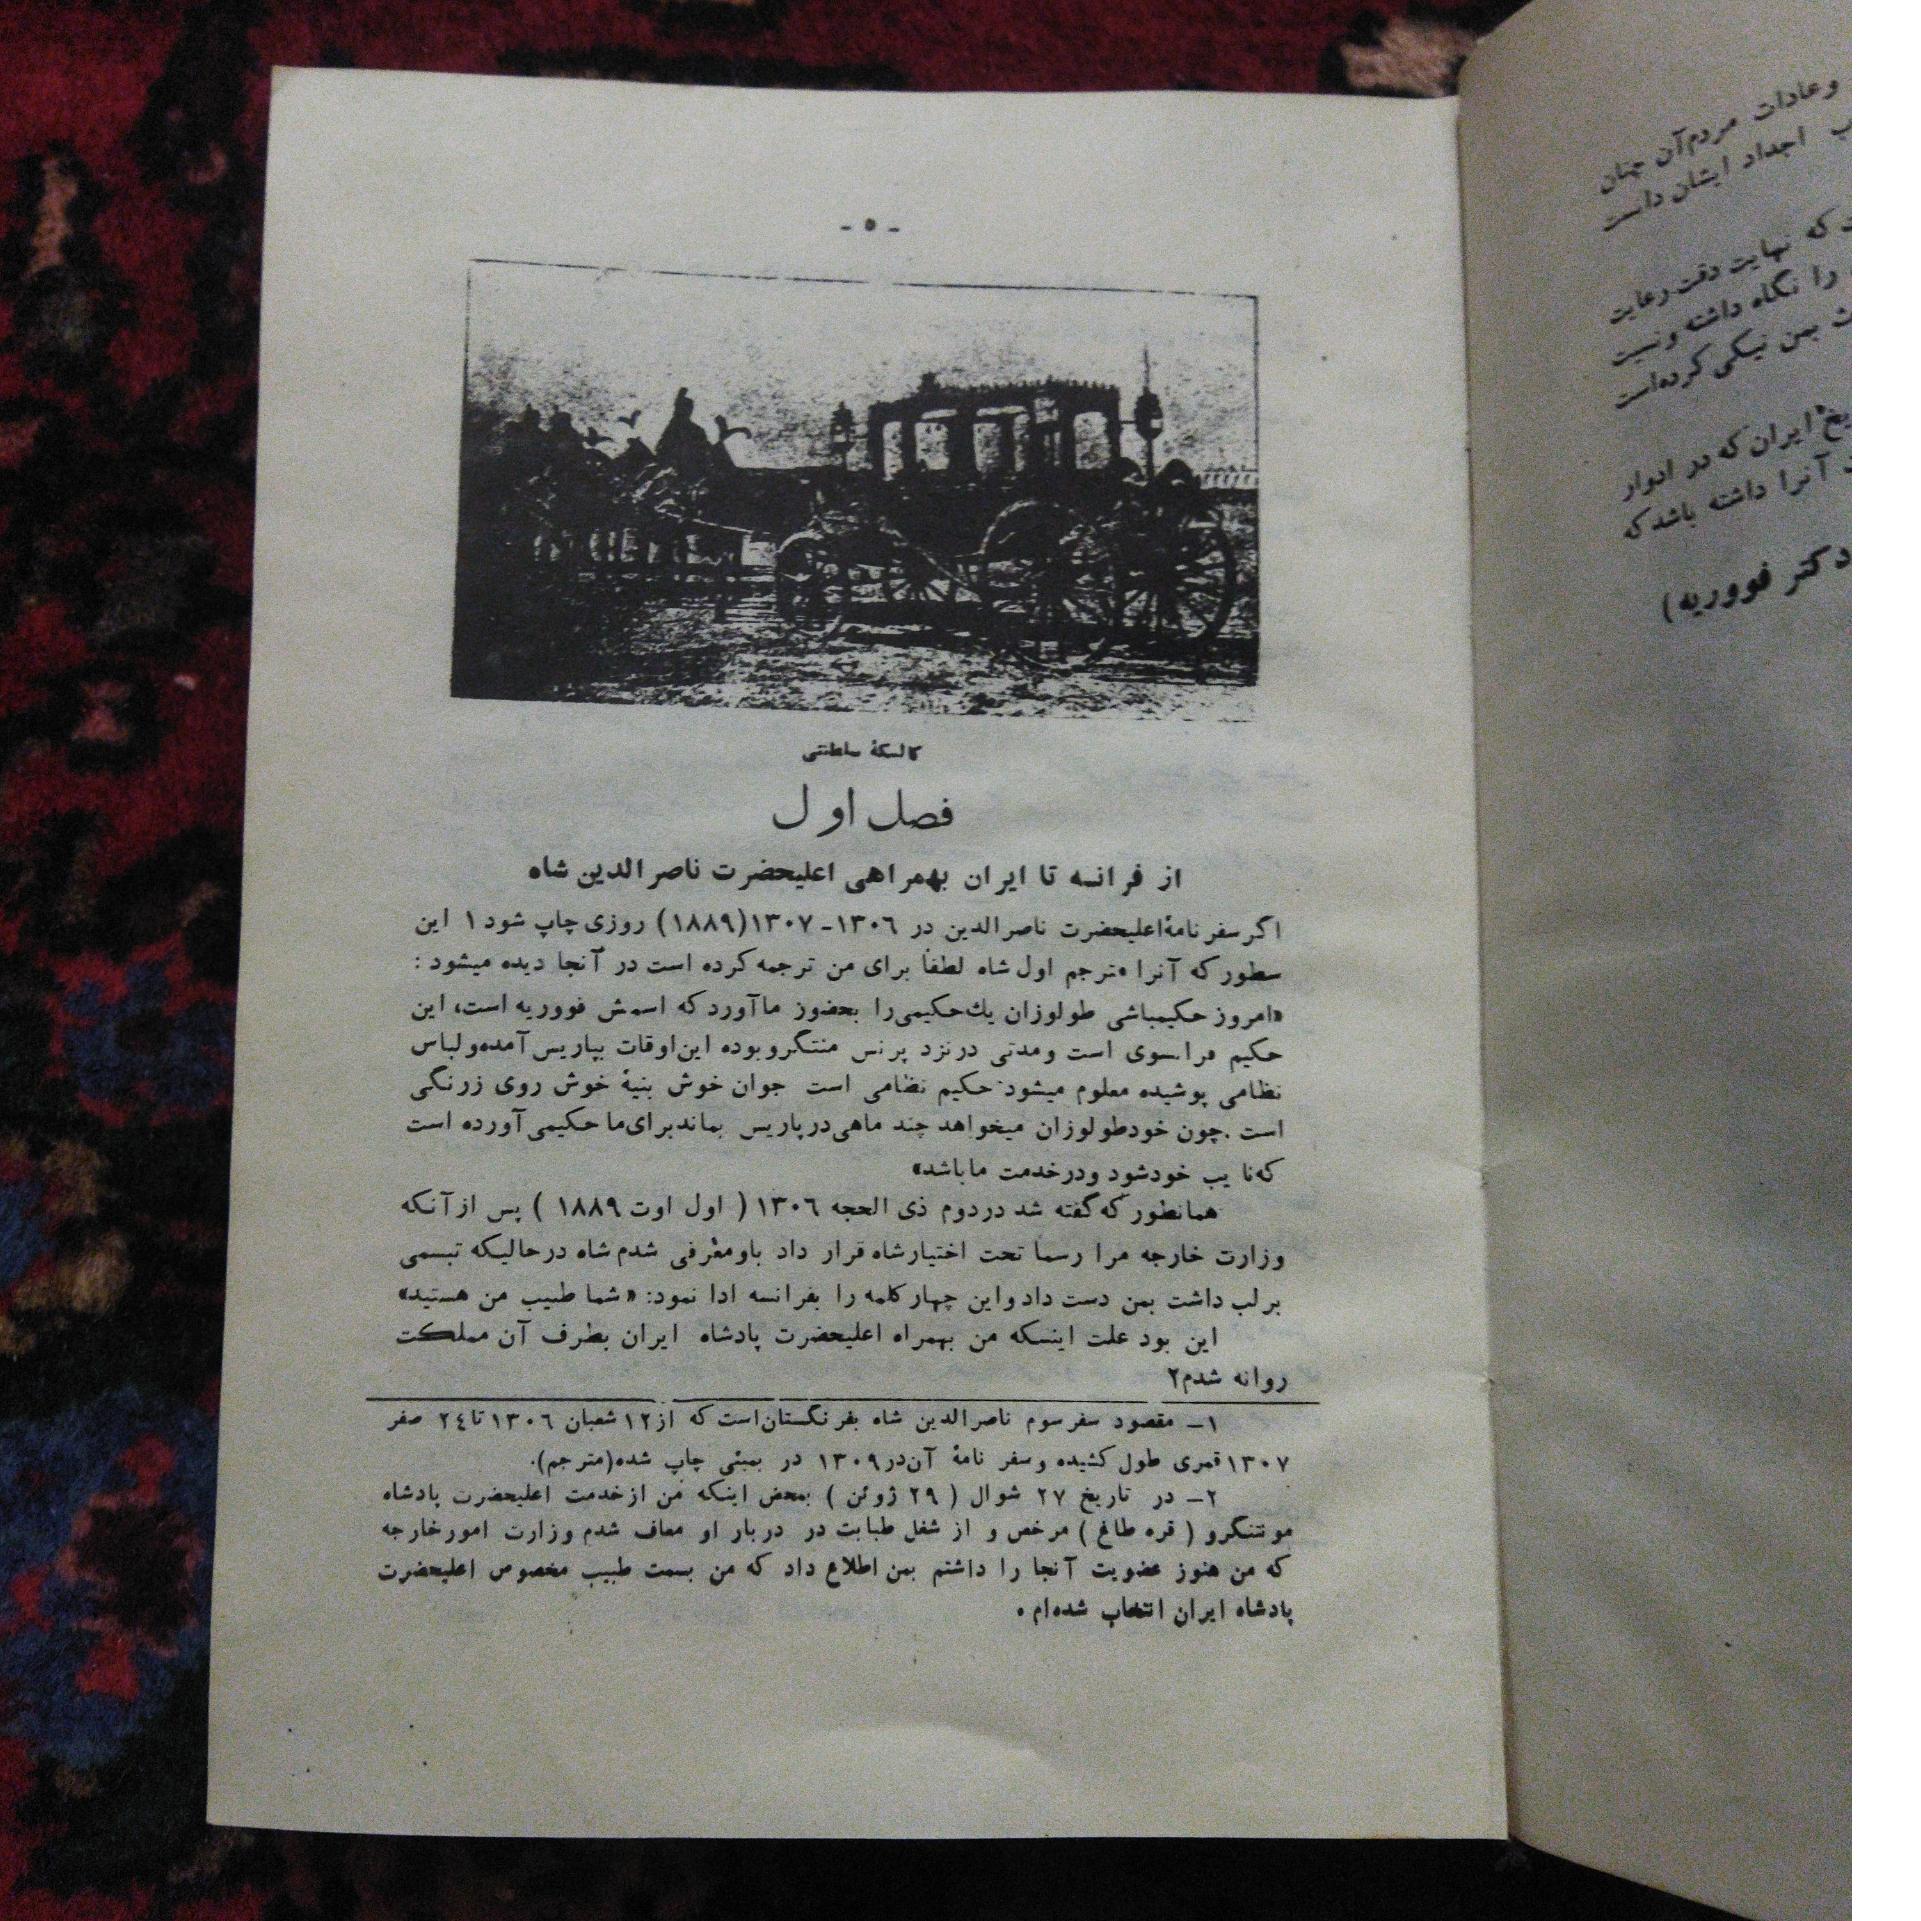 - ٥ -
کالسکهٔ سلطنتی
فصل اول
از فرانسه تا ایران بهمراهی اعلیحضرت ناصرالدین شاه
اگر سفرنامهٔ اعلیحضرت ناصرالدین در ١٣٠٦-١٣٠٧(١٨٨٩) روزی چاپ شود ١ این
سطور که آنرا مترجم اول شاه لطفاً برای من ترجمه کرده است در آنجا دیده میشود :
«امروز حکیمباشی طولوزان یك حکیمی را بحضور ما آورد که اسمش فووریه است، این
حکیم فرانسوی است و مدتی در نزد پرنس منتگرو بوده این اوقات بپاریس آمده و لباس
نظامی پوشیده معلوم میشود حکیم نظامی است جوان خوش بنیهٔ خوش روی زرنگی
است . چون خود طولوزان میخواهد چند ماهی در پاریس بماند برای ما حکیمی آورده است
که نایب خود شود و در خدمت ما باشد»
همانطور که گفته شد در دوم ذی الحجه ١٣٠٦ ( اول اوت ١٨٨٩ ) پس از آنکه
وزارت خارجه مرا رسما تحت اختیار شاه قرار داد باو معرفی شدم شاه در حالیکه تبسمی
بر لب داشت بمن دست داد و این چهار کلمه را بفرانسه ادا نمود: «شما طبیب من هستید»
این بود علت اینکه من بهمراه اعلیحضرت پادشاه ایران بطرف آن مملکت
روانه شدم٢
١- مقصود سفر سوم ناصرالدین شاه بفرنگستان است که از ١٢ شعبان ١٣٠٦ تا ٢٤ صفر
١٣٠٧ قمری طول کشیده و سفر نامهٔ آن در ١٣٠٩ در بمبئی چاپ شده (مترجم).
٢- در تاریخ ٢٧ شوال ( ٢٩ ژوئن ) بمحض اینکه من از خدمت اعلیحضرت پادشاه
مونتنگرو ( قره طاغ ) مرخص و از شغل طبابت در دربار او معاف شدم وزارت امور خارجه
که من هنوز عضویت آنجا را داشتم بمن اطلاع داد که من بسمت طبیب مخصوص اعلیحضرت
پادشاه ایران انتخاب شده‌ام .
وعادات مردم آن چنان
اجداد ایشان داست
که نهایت دقت رعایت
را نگاه داشته ونسبت
بمن نیکی کرده‌است
ایران که در ادوار
آنرا داشته باشد که
دکتر فووریه)